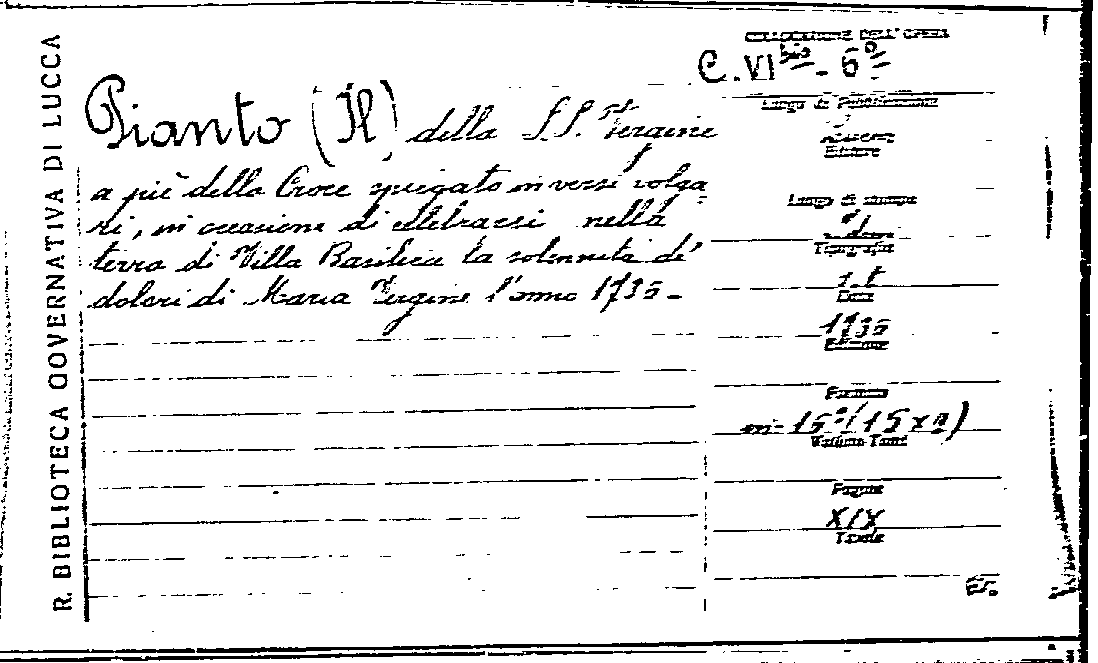 R. BIBLIOTECA GOVERNATIVA DI LUCCA
COLLOCAZIONE DELL'OPERA
C. VI bis - 6º
Pianto (Il) della S.S. Vergine
a piè della Croce spiegato in versi volga-
ri, in occasione di celebrarsi nella
terra di Villa Basilica la solennità de'
dolori di Maria Vergine l'anno 1735 -
Luogo di Pubblicazione
Editore
Luogo di stampa
Tipografia
s.t
Data
1735
Edizione
Formato
Volume Tomi
Pagine
XIX
Tavole